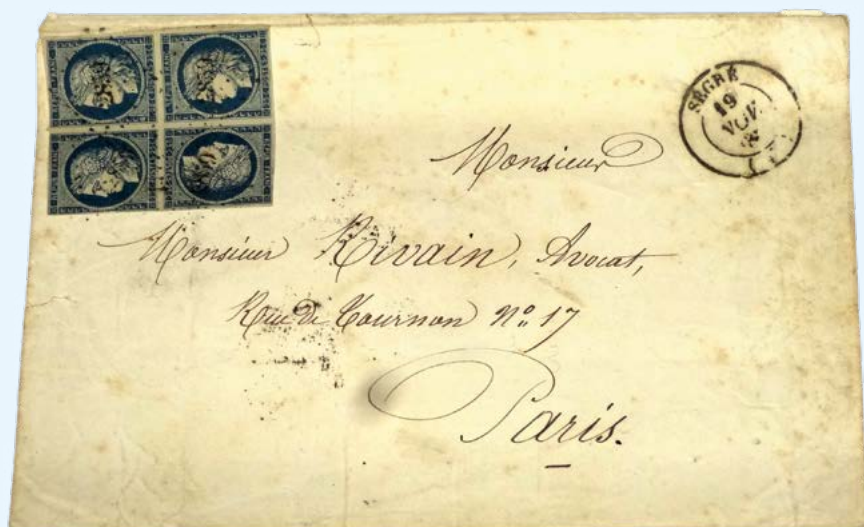 SÉGRÉ
19
NOV.
Monsieur
Monsieur Rivain, Avocat,
Rue de Tournon Nº 17
Paris.